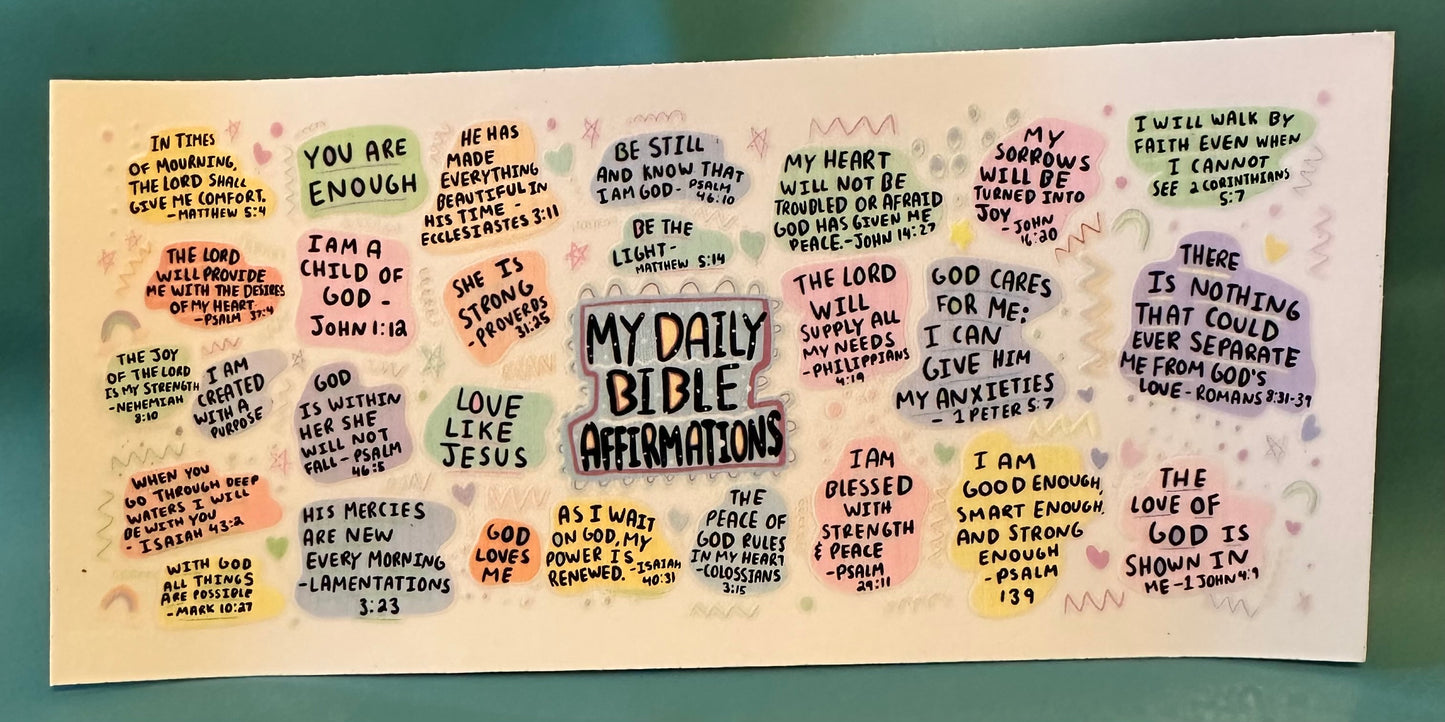 IN TIMES
OF MOURNING,
THE LORD SHALL
GIVE ME COMFORT.
-MATTHEW 5:4
YOU ARE
ENOUGH
HE HAS
MADE
EVERYTHING
BEAUTIFUL IN
HIS TIME -
ECCLESIASTES 3:11
BE STILL
AND KNOW THAT
I AM GOD - PSALM
46:10
MY HEART
WILL NOT BE
TROUBLED OR AFRAID
GOD HAS GIVEN ME
PEACE.-JOHN 14:27
MY
SORROWS
WILL BE
TURNED INTO
JOY
- JOHN
16:20
I WILL WALK BY
FAITH EVEN WHEN
I CANNOT
SEE 2 CORINTHIANS
5:7
THE LORD
WILL PROVIDE
ME WITH THE DESIRES
OF MY HEART
-PSALM 37:4
I AM A
CHILD OF
GOD -
JOHN 1:12
SHE IS
STRONG
-PROVERBS
31:25
BE THE
LIGHT-
MATTHEW 5:14
MY DAILY
BIBLE
AFFIRMATIONS
THE LORD
WILL
SUPPLY ALL
MY NEEDS
-PHILIPPIANS
4:19
GOD CARES
FOR ME;
I CAN
GIVE HIM
MY ANXIETIES
- 1 PETER 5:7
THERE
IS NOTHING
THAT COULD
EVER SEPARATE
ME FROM GOD'S
LOVE - ROMANS 8:31-39
THE JOY
OF THE LORD
IS MY STRENGTH
-NEHEMIAH
8:10
I AM
CREATED
WITH A
PURPOSE
GOD
IS WITHIN
HER SHE
WILL NOT
FALL - PSALM
46:5
LOVE
LIKE
JESUS
WHEN YOU
GO THROUGH DEEP
WATERS I WILL
BE WITH YOU
- ISAIAH 43:2
HIS MERCIES
ARE NEW
EVERY MORNING
-LAMENTATIONS
3:23
GOD
LOVES
ME
AS I WAIT
ON GOD, MY
POWER IS
RENEWED. -ISAIAH
40:31
THE
PEACE OF
GOD RULES
IN MY HEART
-COLOSSIANS
3:15
I AM
BLESSED
WITH
STRENGTH
& PEACE
-PSALM
29:11
I AM
GOOD ENOUGH,
SMART ENOUGH,
AND STRONG
ENOUGH
-PSALM
139
THE
LOVE OF
GOD IS
SHOWN IN
ME -1 JOHN 4:9
WITH GOD
ALL THINGS
ARE POSSIBLE
-MARK 10:27